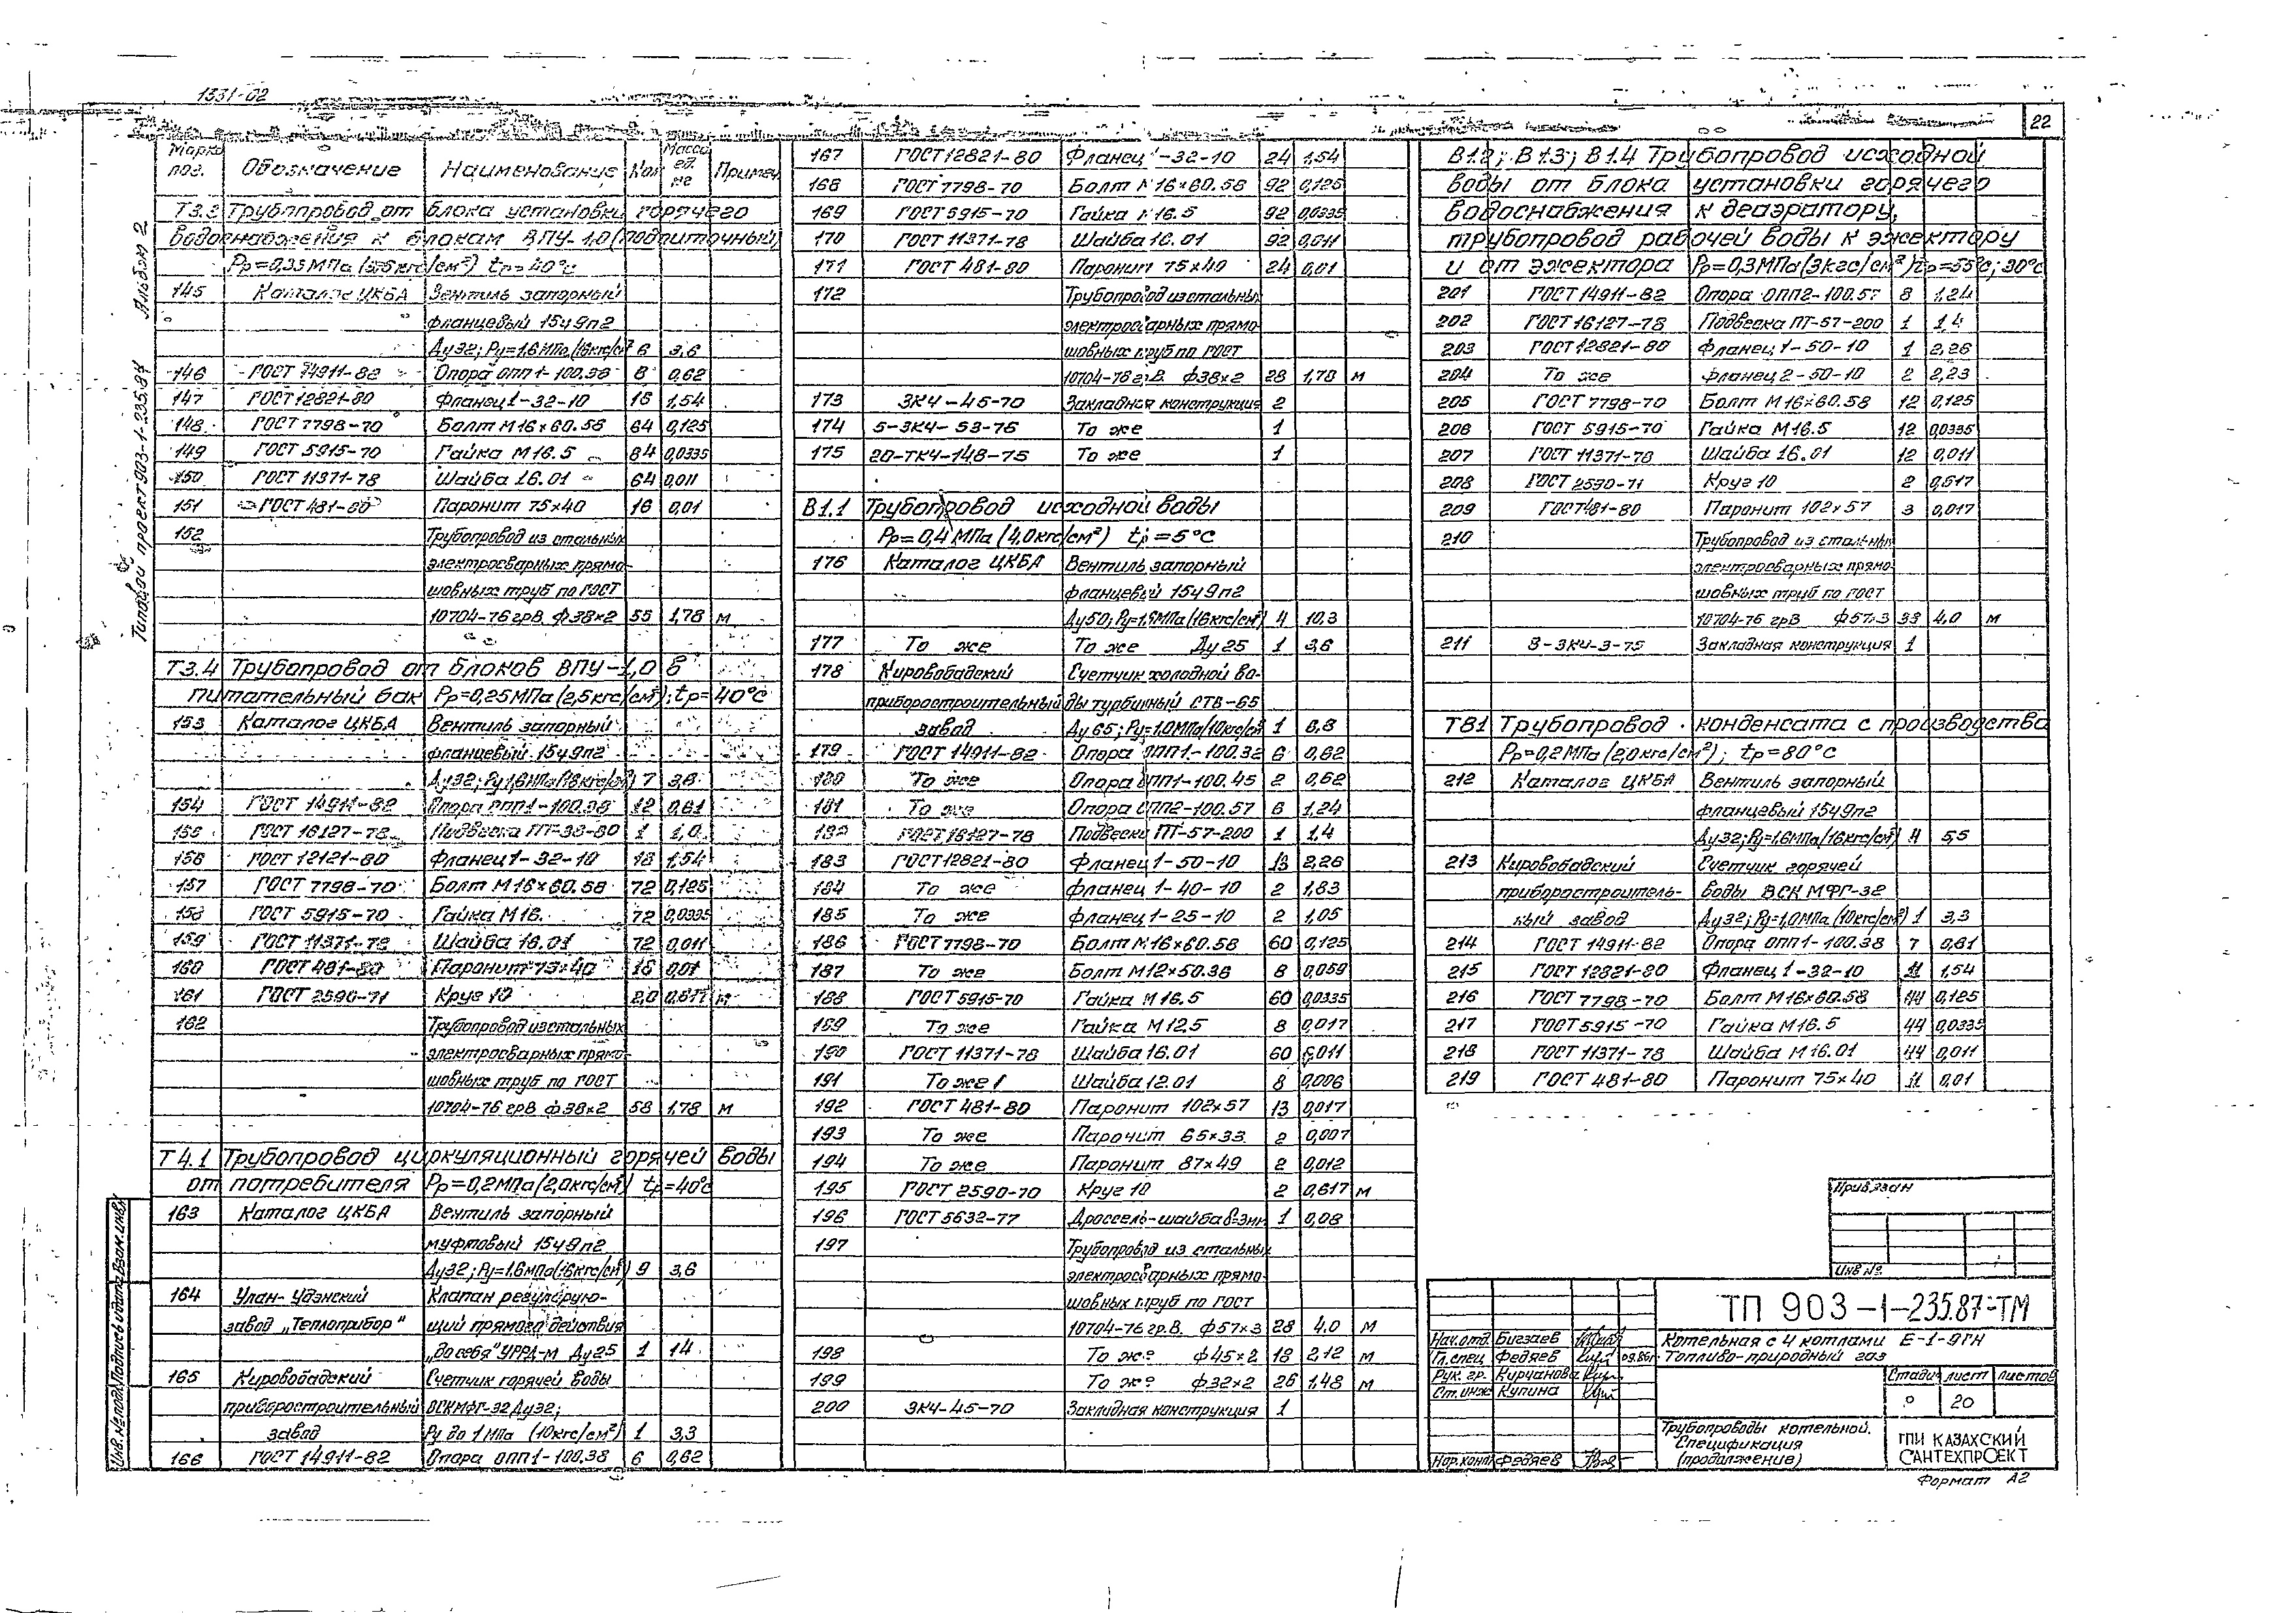 1331-02
22
Альбом 2
Типовой проект 903-1-235.87
Марка поз. Обозначение Наименование Кол Масса ед. кг Примеч.
Т3.3 Трубопровод от блока установки горячего
водоснабжения к блокам ВПУ-1,0 (подпиточный)
Рр=0,35МПа (3,5кгс/см²) tр=40°С
145 Каталог ЦКБА Вентиль запорный
фланцевый 15ч9п2
Ду32; Ру=1,6МПа (16кгс/см² 6 3,6
146 ГОСТ 14911-82 Опора ОПП1-100.38 8 0,62
147 ГОСТ 12821-80 Фланец 1-32-10 16 1,54
148 ГОСТ 7798-70 Болт М16×60.58 64 0,125
149 ГОСТ 5915-70 Гайка М16.5 64 0,0335
150 ГОСТ 11371-78 Шайба 16.01 64 0,011
151 ГОСТ 481-80 Паронит 75×40 16 0,01
152 Трубопровод из стальных
электросварных прямо-
шовных труб по ГОСТ
10704-76 грВ ф38×2 55 1,78 м
Т3.4 Трубопровод от блоков ВПУ-1,0 в
питательный бак Рр=0,25МПа (2,5кгс/см²); tр=40°С
153 Каталог ЦКБА Вентиль запорный
фланцевый 15ч9п2
Ду32; Ру1,6МПа(16кгс/см²) 7 3,6
154 ГОСТ 14911-82 Опора ОПП1-100.38 12 0,61
155 ГОСТ 16127-78 Подвеска ПТ-38-80 1 1,0
156 ГОСТ 12121-80 Фланец 1-32-10 18 1,54
157 ГОСТ 7798-70 Болт М16×60.58 72 0,125
158 ГОСТ 5915-70 Гайка М16. 72 0,0335
159 ГОСТ 11371-78 Шайба 16.01 72 0,011
160 ГОСТ 481-80 Паронит 75×40 18 0,01
161 ГОСТ 2590-71 Круг 10 2,0 0,617 м
162 Трубопровод из стальных
электросварных прямо-
шовных труб по ГОСТ
10704-76 грВ ф38×2 58 1,78 м
Т4.1 Трубопровод циркуляционный горячей воды
от потребителя Рр=0,2МПа (2,0кгс/см²) tр=40°С
163 Каталог ЦКБА Вентиль запорный
муфтовый 15ч9п2
Ду32; Ру=1,6МПа(16кгс/см²) 9 3,6
164 Улан-Удэнский Клапан регулирую-
завод „Теплоприбор" щий прямого действия
„До себя" УРРД-М Ду25 1 14
165 Кировобадский Счетчик горячей воды
приборостроительный ВСКМФГ-32 Ду32;
завод Ру до 1МПа (10кгс/см²) 1 3,3
166 ГОСТ 14911-82 Опора ОПП1-100.38 6 0,62
167 ГОСТ 12821-80 Фланец 1-32-10 24 1,54
168 ГОСТ 7798-70 Болт М16×60.58 92 0,125
169 ГОСТ 5915-70 Гайка М16.5 92 0,0335
170 ГОСТ 11371-78 Шайба 16.01 92 0,011
171 ГОСТ 481-80 Паронит 75×40 24 0,01
172 Трубопровод из стальных
электросварных прямо-
шовных труб по ГОСТ
10704-76 гр.В ф38×2 28 1,78 м
173 ЗК4-45-70 Закладная конструкция 2
174 5-ЗК4-53-76 То же 1
175 20-ТК4-148-75 То же 1
В1.1 Трубопровод исходной воды
Рр=0,4МПа (4,0кгс/см²) tр=5°С
176 Каталог ЦКБА Вентиль запорный
фланцевый 15ч9п2
Ду50; Ру=1,6МПа(16кгс/см²) 4 10,3
177 То же То же Ду25 1 3,6
178 Кировобадский Счетчик холодной во-
приборостроительный ды турбинный СТВ-65
завод Ду65; Ру=1,0МПа(10кгс/см² 1 8,8
179 ГОСТ 14911-82 Опора ОПП1-100.32 6 0,62
180 То же Опора ОПП1-100.45 2 0,62
181 То же Опора ОПП2-100.57 6 1,24
182 ГОСТ 16127-78 Подвеска ПТ-57-200 1 1,4
183 ГОСТ 12821-80 Фланец 1-50-10 13 2,26
184 То же Фланец 1-40-10 2 1,83
185 То же Фланец 1-25-10 2 1,05
186 ГОСТ 7798-70 Болт М16×60.58 60 0,125
187 То же Болт М12×50.36 8 0,059
188 ГОСТ 5915-70 Гайка М16.5 60 0,0335
189 То же Гайка М12.5 8 0,017
190 ГОСТ 11371-78 Шайба 16.01 60 0,011
191 То же Шайба 12.01 8 0,006
192 ГОСТ 481-80 Паронит 102×57 13 0,017
193 То же Паронит 65×33 2 0,007
194 То же Паронит 87×49 2 0,012
195 ГОСТ 2590-70 Круг 10 2 0,617 м
196 ГОСТ 5632-77 Дроссель-шайба δ=3мм 1 0,08
197 Трубопровод из стальных
электросварных прямо-
шовных труб по ГОСТ
10704-76 гр.В. ф57×3 28 4.0 м
198 То же ф45×2 18 2,12 м
199 То же ф32×2 26 1,48 м
200 ЗК4-45-70 Закладная конструкция 1
В1.2; В1.3; В1.4 Трубопровод исходной
воды от блока установки горячего
водоснабжения к деаэратору,
трубопровод рабочей воды к эжектору
и от эжектора Рр=0,3МПа (3кгс/см²) tр=55°С; 30°С
201 ГОСТ 14911-82 Опора ОПП2-100.57 8 1,24
202 ГОСТ 16127-78 Подвеска ПТ-57-200 1 1,4
203 ГОСТ 12821-80 Фланец 1-50-10 1 2,26
204 То же Фланец 2-50-10 2 2,23
205 ГОСТ 7798-70 Болт М16×60.58 12 0,125
206 ГОСТ 5915-70 Гайка М16.5 12 0,0335
207 ГОСТ 11371-78 Шайба 16.01 12 0,011
208 ГОСТ 2590-71 Круг 10 2 0,617
209 ГОСТ 481-80 Паронит 102×57 3 0,017
210 Трубопровод из стальных
электросварных прямо-
шовных труб по ГОСТ
10704-76 грВ ф57×3 33 4,0 м
211 8-ЗК4-3-75 Закладная конструкция 1
Т81 Трубопровод конденсата с производства
Рр=0,2МПа (2,0кгс/см²); tр=80°С
212 Каталог ЦКБА Вентиль запорный
фланцевый 15ч9п2
Ду32; Ру=1,6МПа(16кгс/см²) 4 5,5
213 Кировобадский Счетчик горячей
приборостроитель- воды ВСКМФГ-32
ный завод Ду32; Ру=1,0МПа(10кгс/см²) 1 3,3
214 ГОСТ 14911-82 Опора ОПП1-100.38 7 0,61
215 ГОСТ 12821-80 Фланец 1-32-10 11 1,54
216 ГОСТ 7798-70 Болт М16×60.58 44 0,125
217 ГОСТ 5915-70 Гайка М16.5 44 0,0335
218 ГОСТ 11371-78 Шайба М16.01 44 0,011
219 ГОСТ 481-80 Паронит 75×40 11 0,01
Привязан
Инв №
ТП 903-1-235.87-ТМ
Нач.отд. Бигзаев
Гл.спец Федяев 09.86г.
Рук. гр. Кирчанова
Ст.инж Купина
Нор.конт Федяев
Котельная с 4 котлами Е-1-9ГН
Топливо-природный газ
Стадия лист листов
Р 20
Трубопроводы котельной.
Спецификация
(продолжение)
ГПИ КАЗАХСКИЙ
САНТЕХПРОЕКТ
Формат А2
Инв.№ подл. Подпись и дата Взам.инв.№